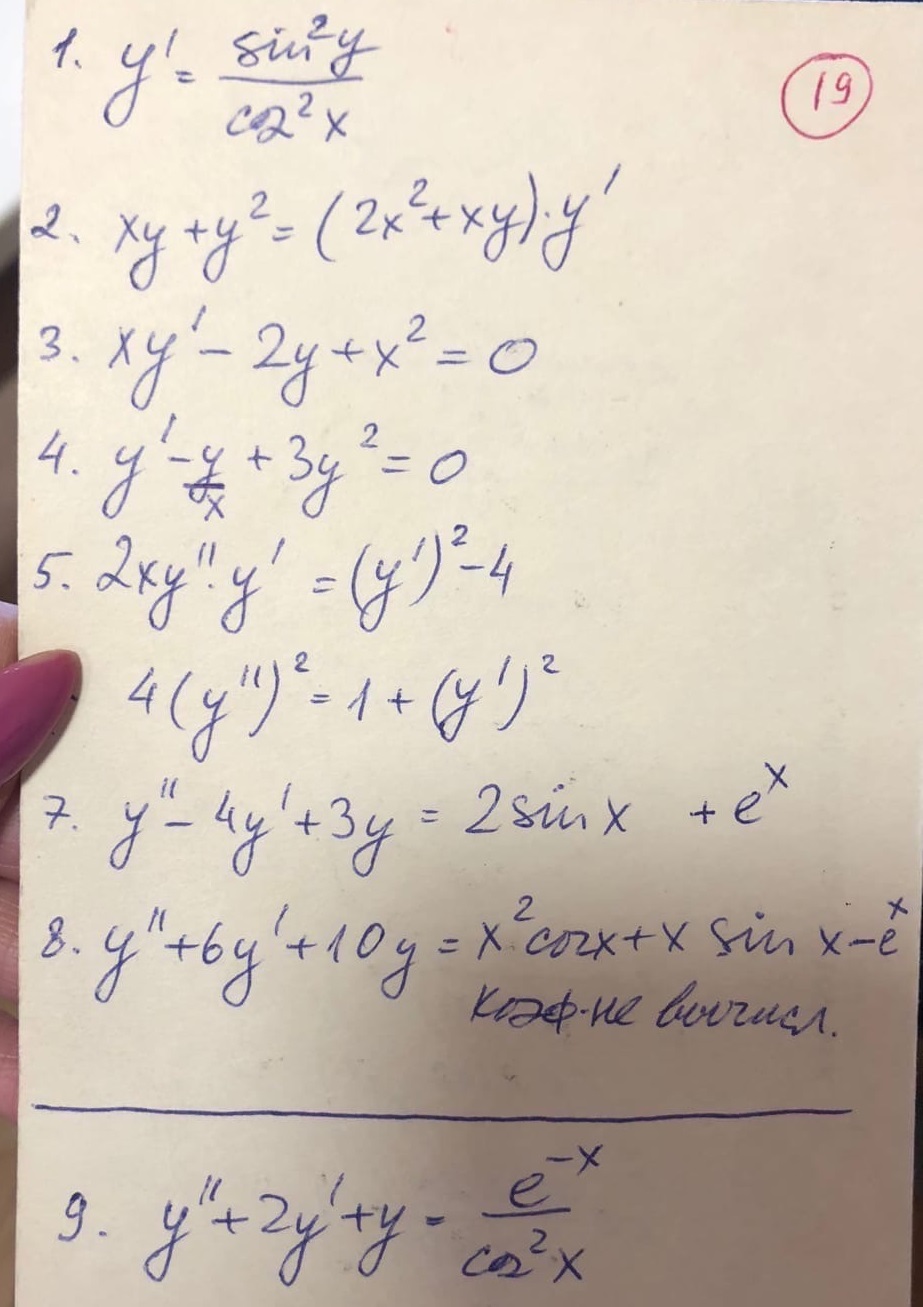 19
1. y' = sin²y / cos²x
2. xy + y² = (2x² + xy)·y'
3. xy' - 2y + x² = 0
4. y' - y/x + 3y² = 0
5. 2xy''·y' = (y')² - 4
4(y'')² = 1 + (y')²
7. y'' - 4y' + 3y = 2 sin x + eˣ
8. y'' + 6y' + 10y = x² cos x + x sin x - eˣ
коэф. не вычисл.
9. y'' + 2y' + y = e⁻ˣ / cos²x